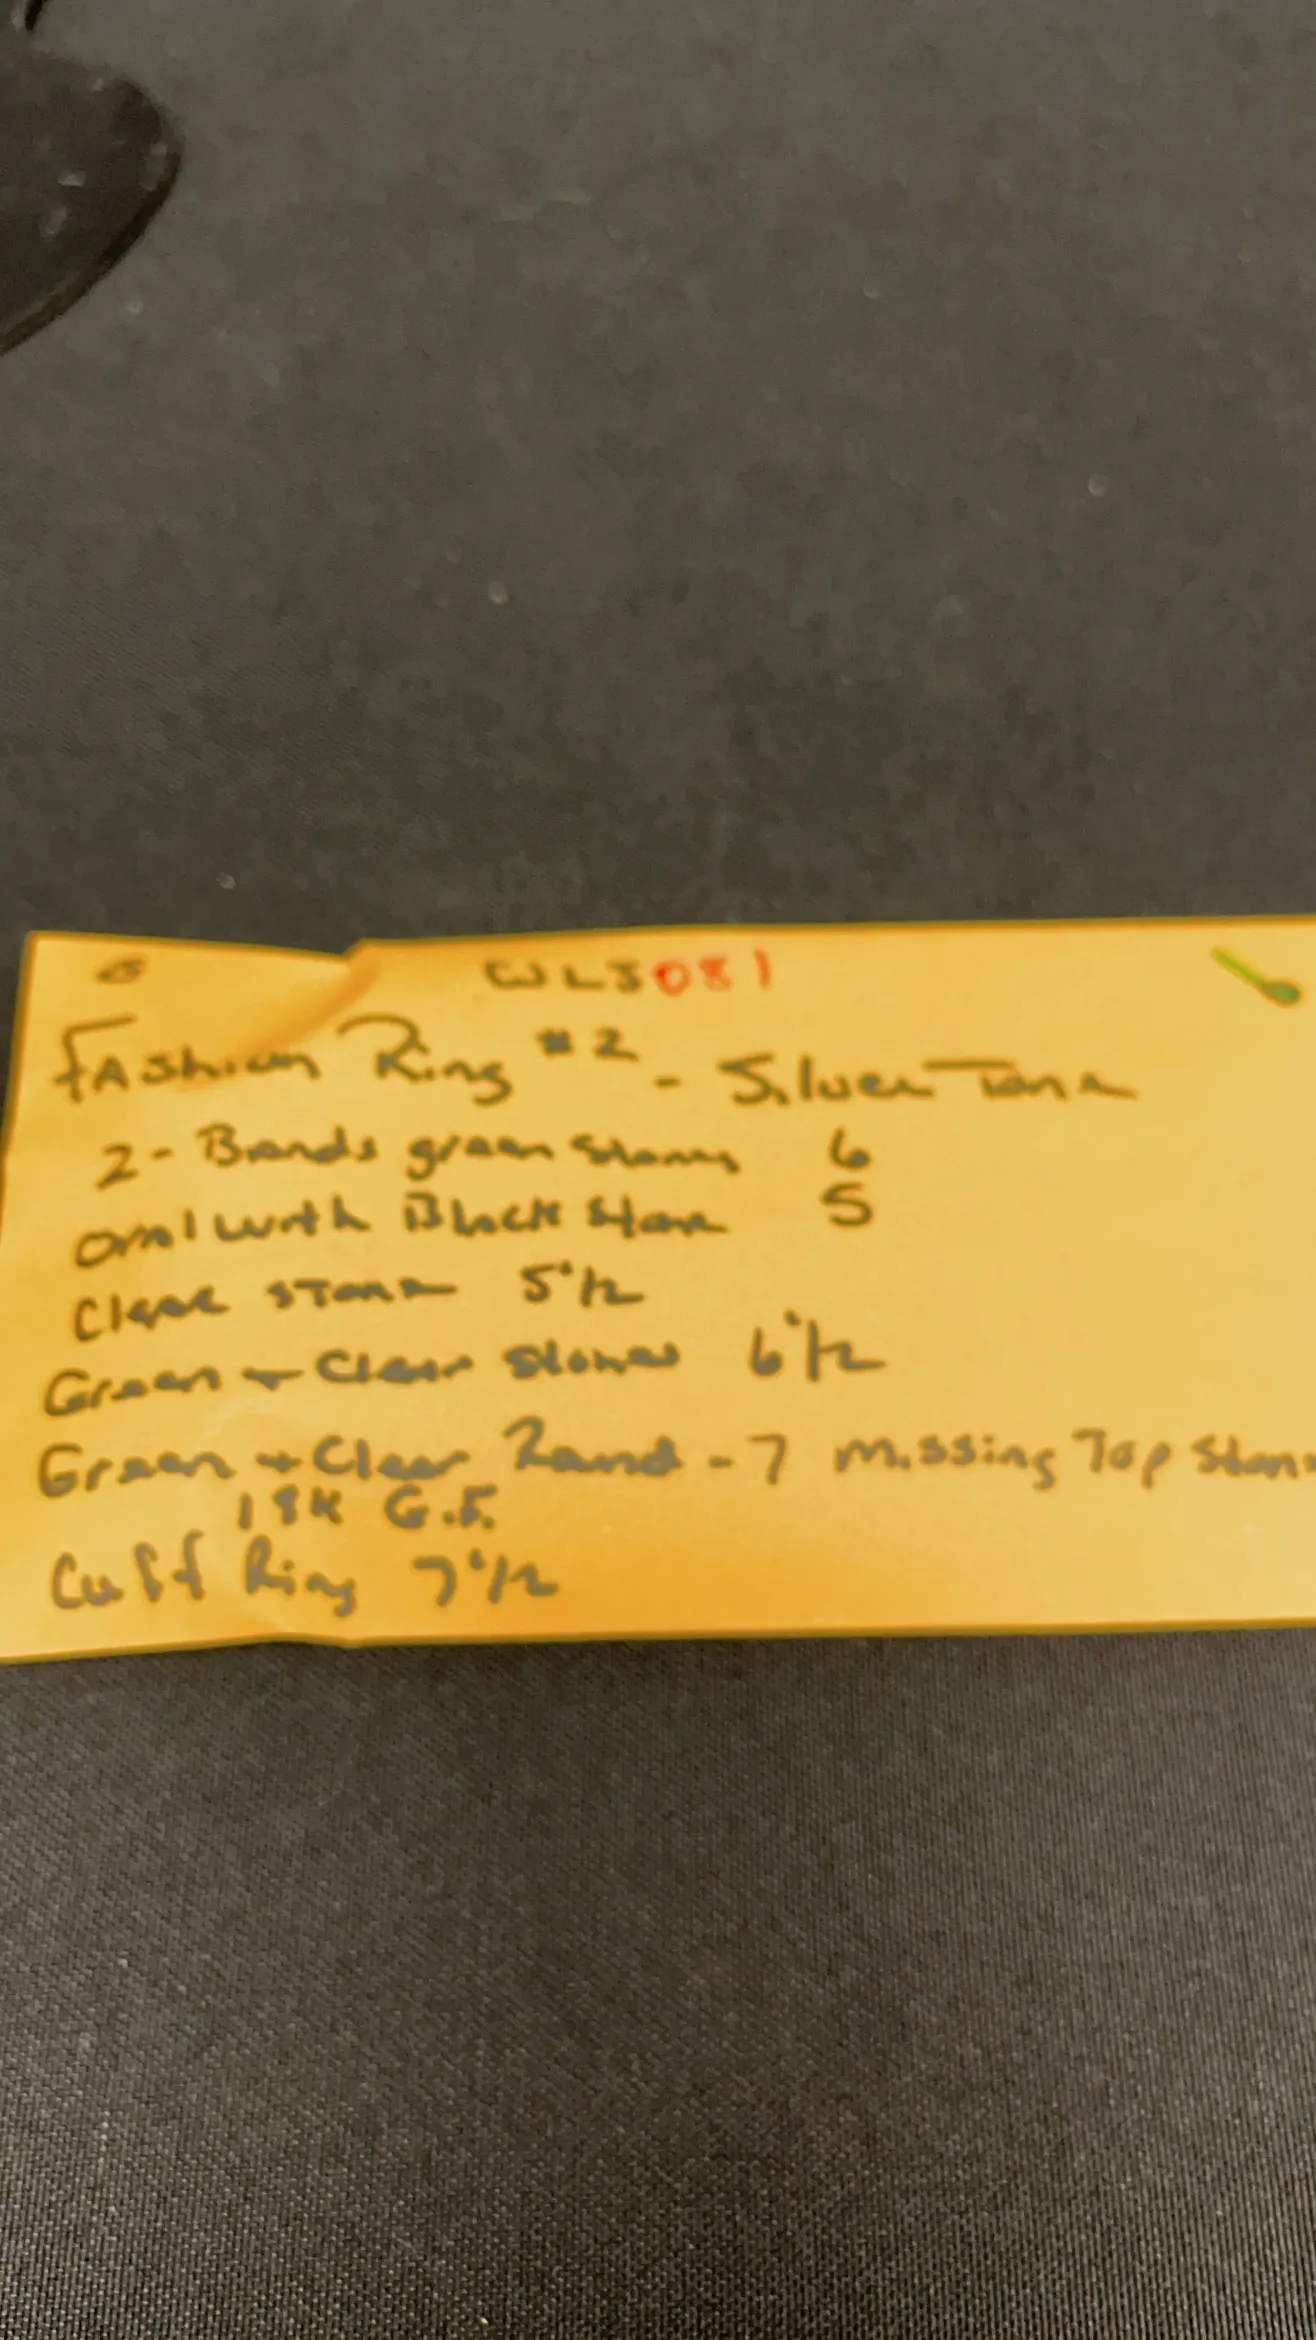 WLJ081
Fashion Ring #2 - Silver Tone
2 - Bands green stones 6
oval with Black stone 5
Clear stone 5 1/2
Green + Clear stones 6 1/2
Green + Clear Round - 7 Missing Top Stone
18K G.F.
Cuff Ring 7 1/2